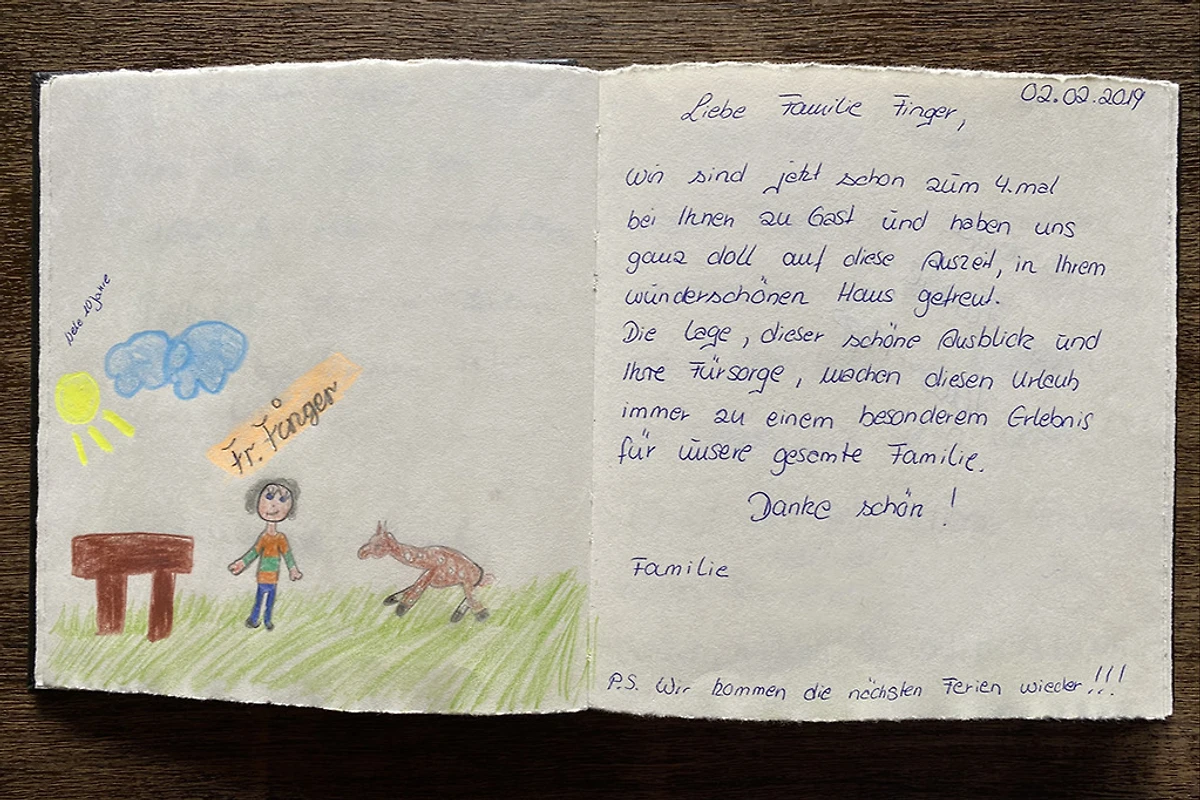 10 Jahre
Fr. Finger
02.02.2019
Liebe Familie Finger,
wir sind jetzt schon zum 4. mal
bei Ihnen zu Gast und haben uns
ganz doll auf diese Auszeit, in Ihrem
wunderschönen Haus gefreut.
Die Lage, dieser schöne Ausblick und
Ihre Fürsorge, machen diesen Urlaub
immer zu einem besonderem Erlebnis
für unsere gesamte Familie.
Danke schön!
Familie
P.S. Wir kommen die nächsten Ferien wieder!!!